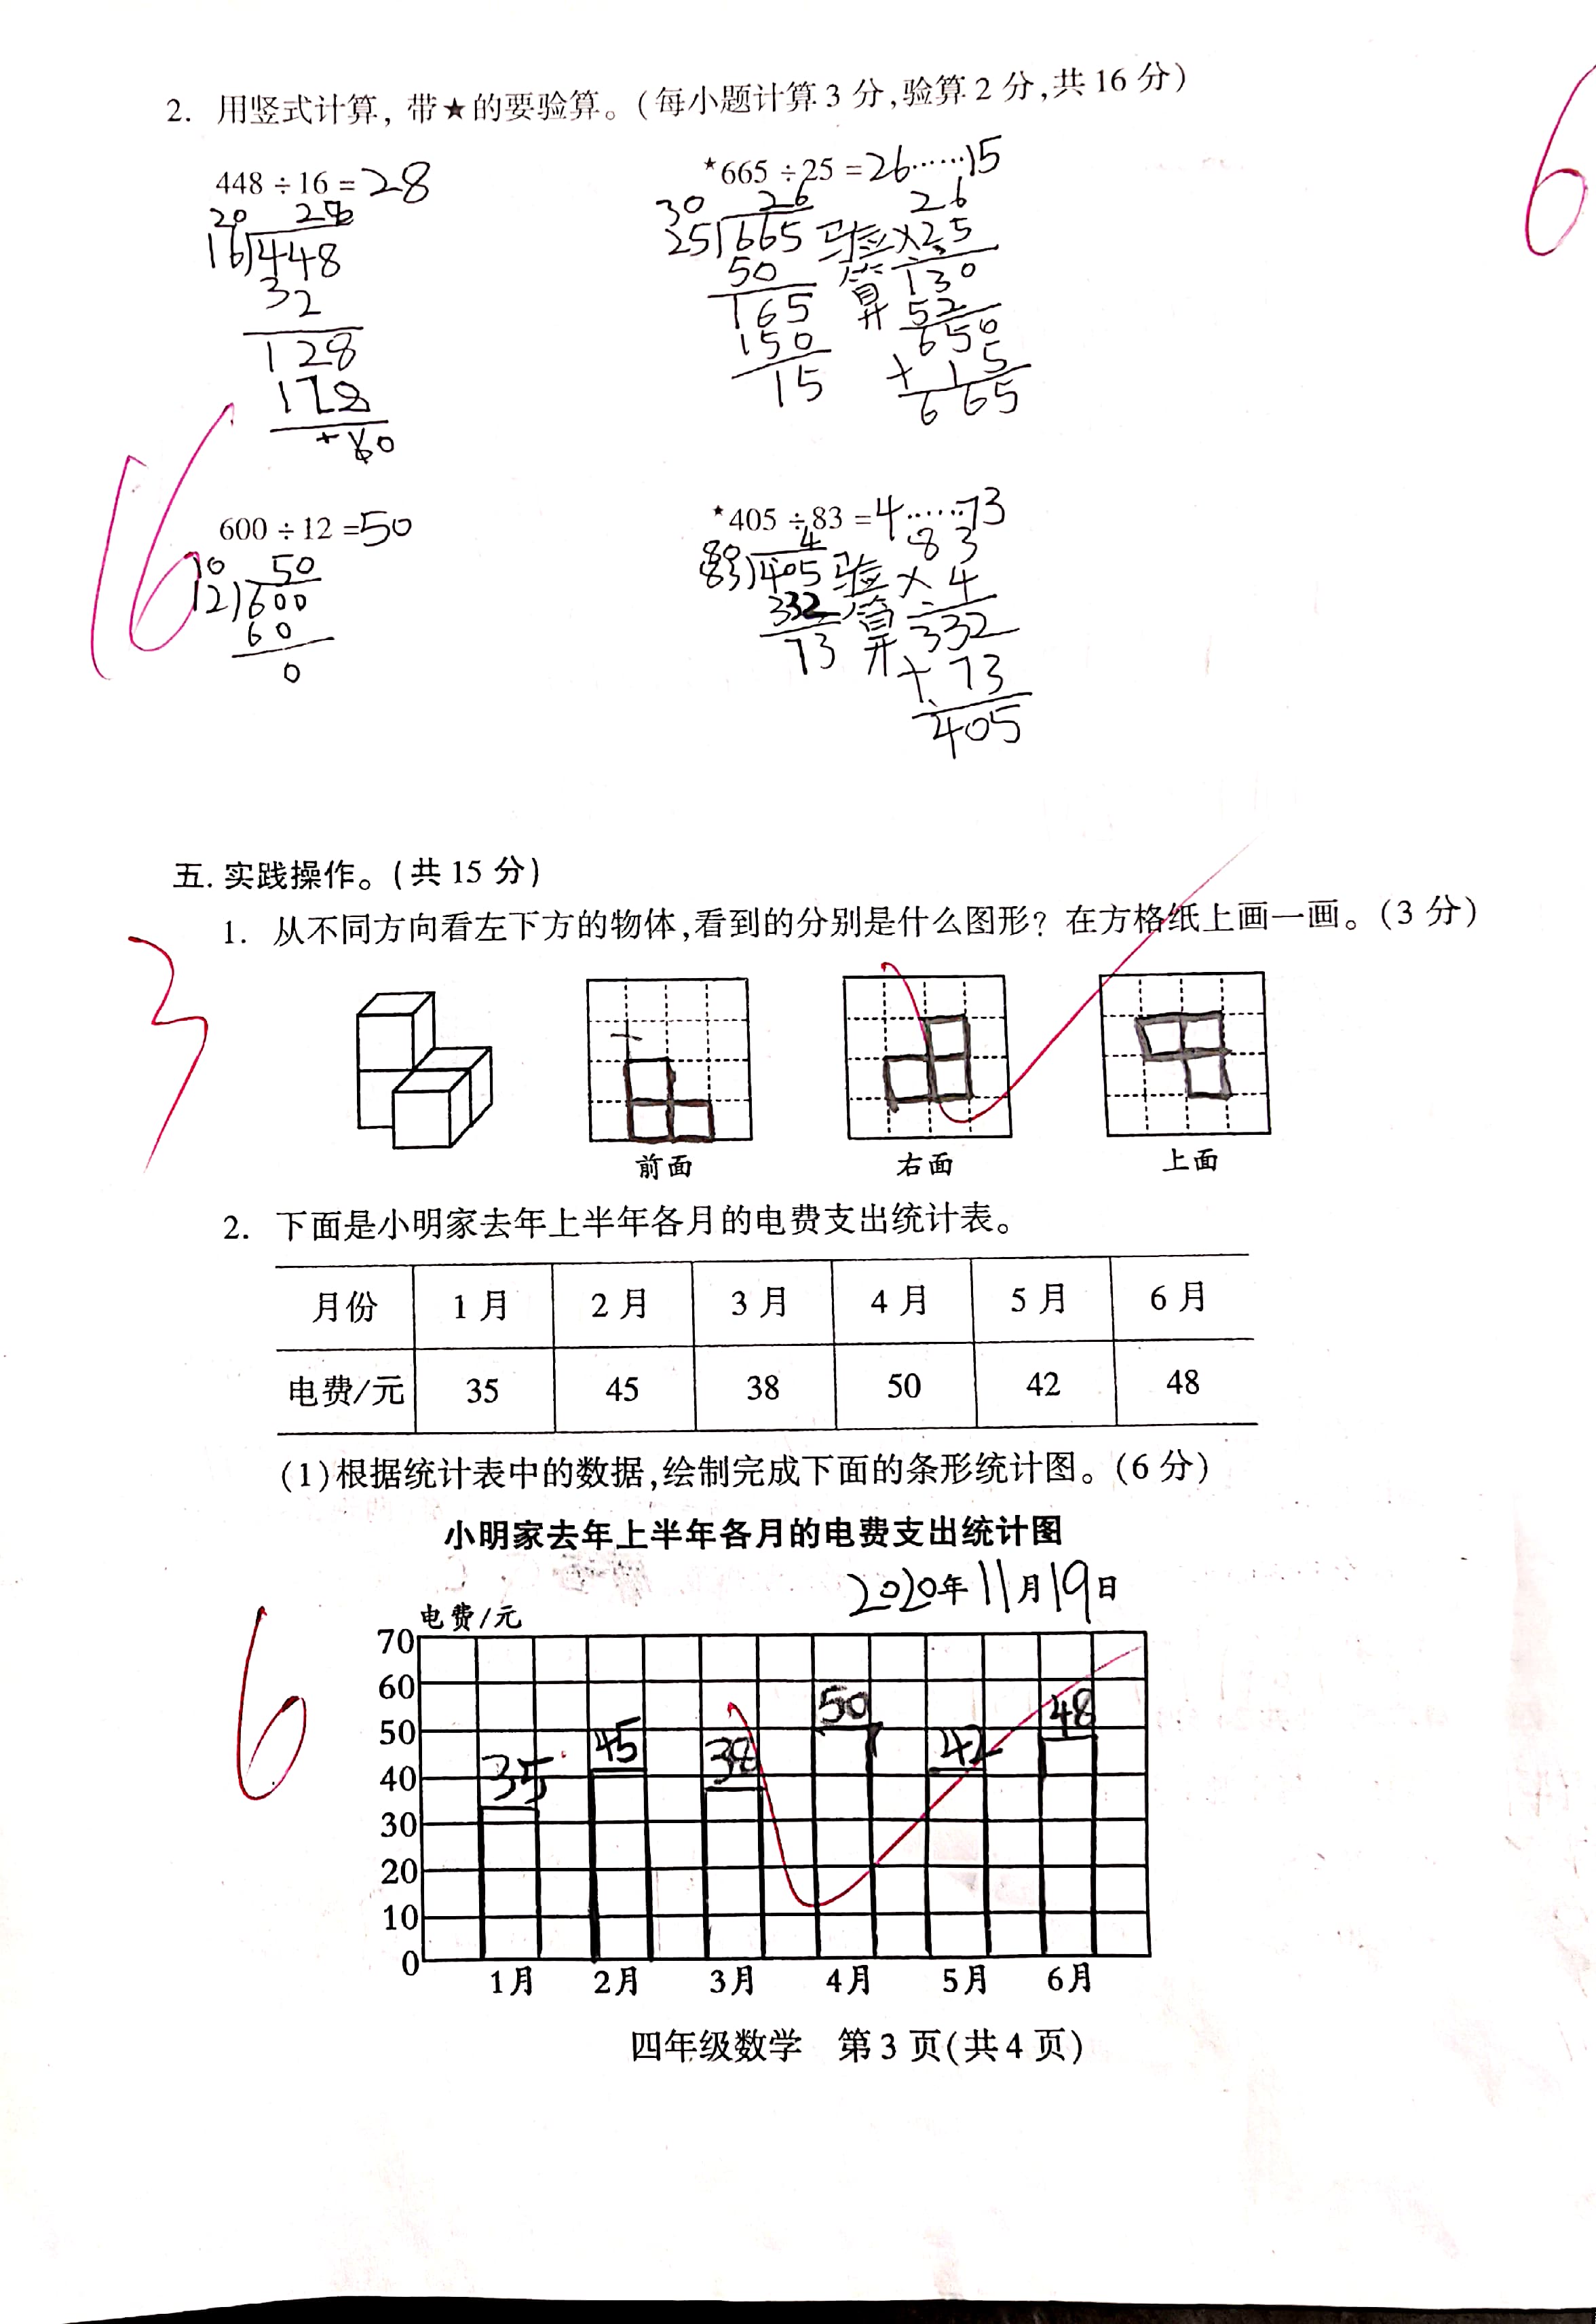 2. 用竖式计算，带★的要验算。(每小题计算3分,验算2分,共16分)
448÷16=28
★665÷25=26……15
20 28
30 26
26
16)448
25)665 验 ×25
32
50 算 130
128
165
52
128
150
650
0
15
+ 15
665
16
6
600÷12=50
★405÷83=4……73
10 50
80 4
83
12)600
83)405 验 ×4
60
332 算 332
0
73
+73
405
五. 实践操作。(共15分)
1. 从不同方向看左下方的物体,看到的分别是什么图形？在方格纸上画一画。(3分)
3
前面 右面 上面
2. 下面是小明家去年上半年各月的电费支出统计表。
月份 1月 2月 3月 4月 5月 6月
电费/元 35 45 38 50 42 48
(1)根据统计表中的数据,绘制完成下面的条形统计图。(6分)
小明家去年上半年各月的电费支出统计图
2020年11月19日
6
电费/元
70
60
50
40
30
20
10
0
35 45 38 50 42 48
1月 2月 3月 4月 5月 6月
四年级数学 第3页(共4页)